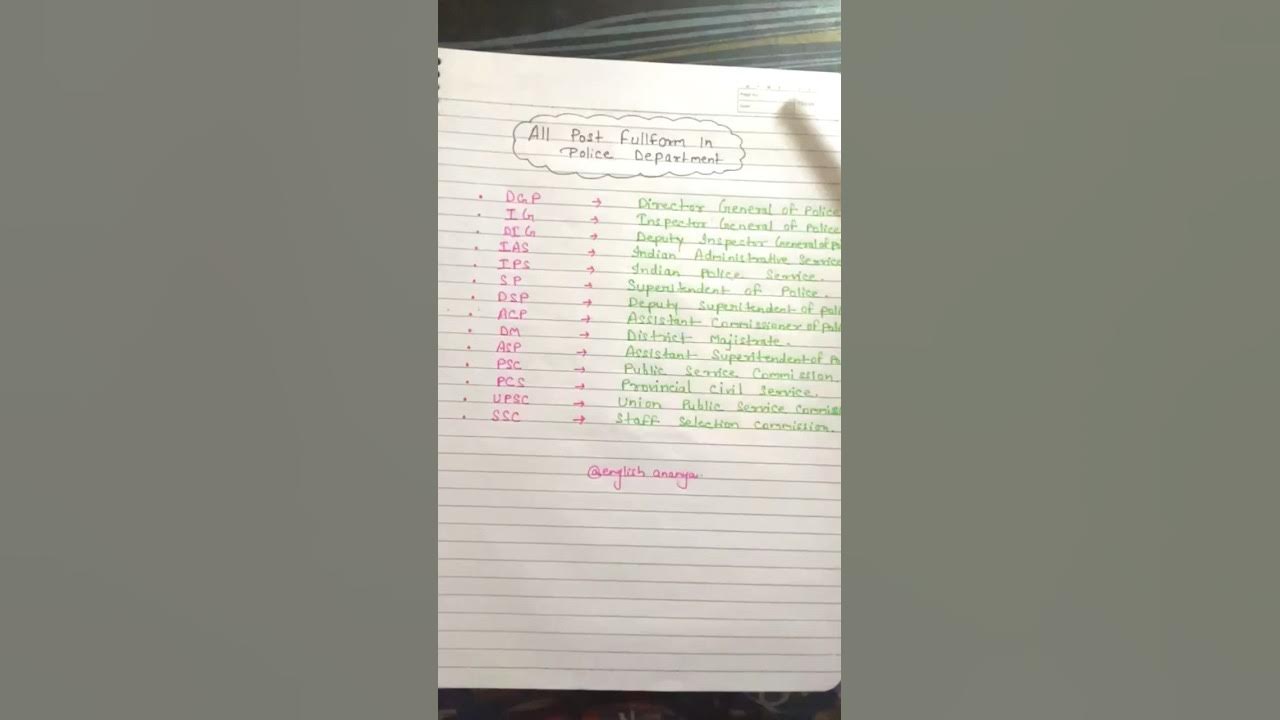 All Post Fullform In
Police Department
• DGP → Director General of Police
• IG → Inspector General of Police
• DIG → Deputy Inspector General of
• IAS → Indian Administrative Service
• IPS → Indian Police Service.
• SP → Superitendent of Police.
• DSP → Deputy Superitendent of
• ACP → Assistant Commissioner of
• DM → District Majistrate.
• ASP → Assistant Superitendent of
• PSC → Public Service Commission.
• PCS → Provincial Civil Service.
• UPSC → Union Public Service
• SSC → Staff Selection Commission.
@english ananya